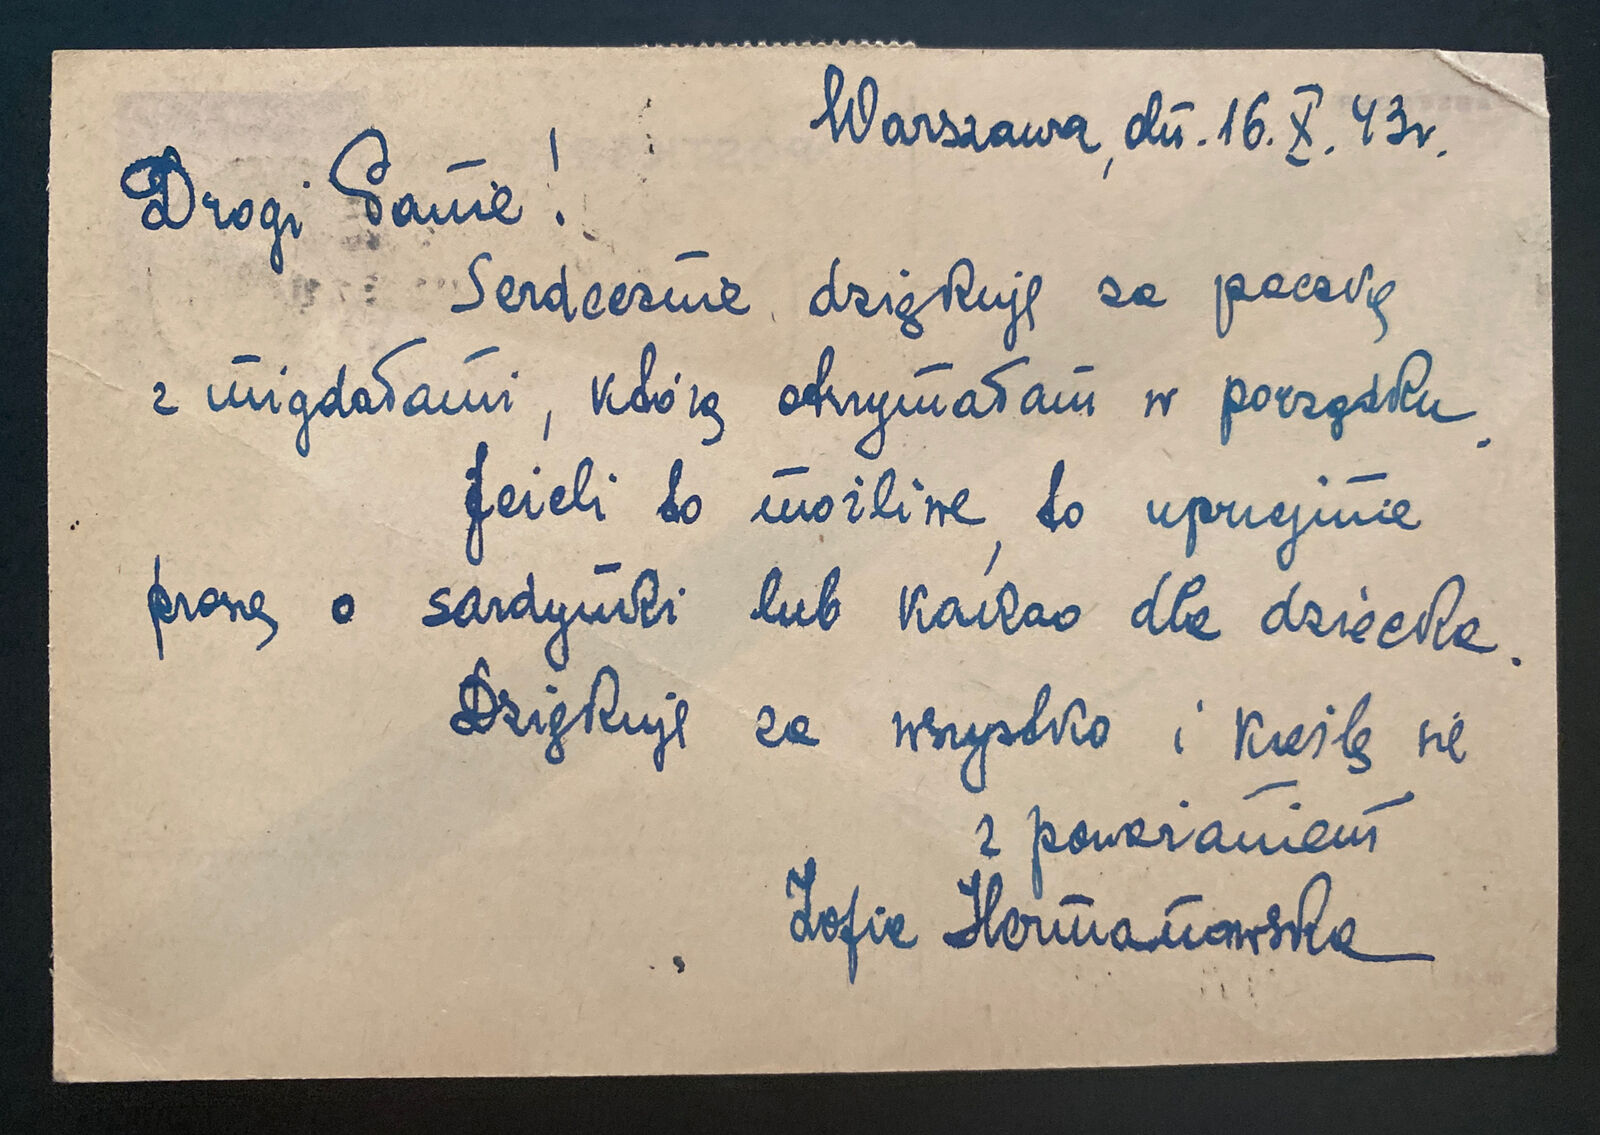 Warszawa, dn. 16.X.43r.
Drogi Panie!
Serdecznie dziękuję za paczkę
z migdałami, którą otrzymałam w porządku.
Jeżeli to możliwe, to uprzejmie
proszę o sardynki lub kakao dla dziecka.
Dziękuję za wszystko i kreślę się
z poważaniem
Zofia Hermanowska